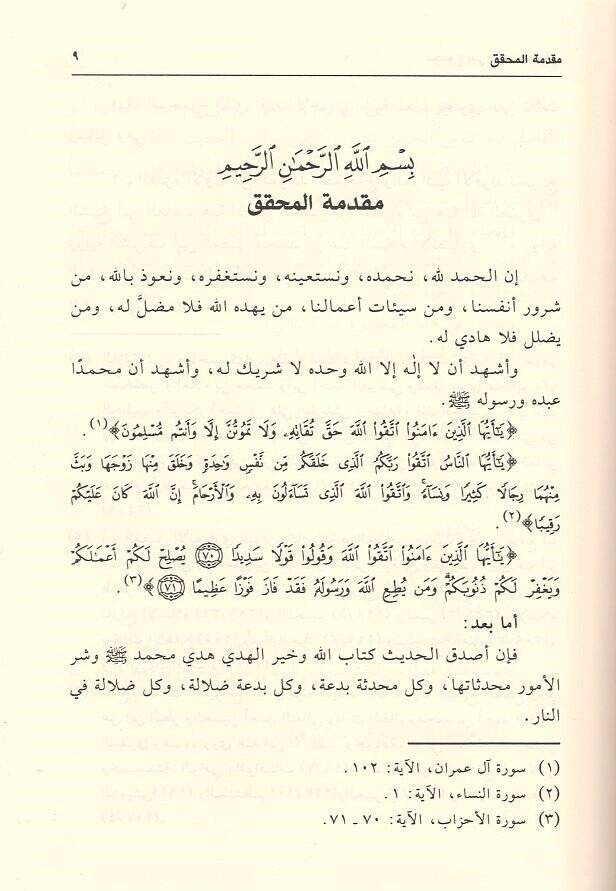 مقدمة المحقق ٩
بِسْمِ اللَّهِ الرَّحْمَٰنِ الرَّحِيمِ
مقدمة المحقق
إن الحمد لله، نحمده، ونستعينه، ونستغفره، ونعوذ بالله، من
شرور أنفسنا، ومن سيئات أعمالنا، من يهده الله فلا مضلَّ له، ومن
يضلل فلا هادي له.
وأشهد أن لا إلٰه إلا الله وحده لا شريك له، وأشهد أن محمدًا
عبده ورسوله ﷺ.
﴿يَٰٓأَيُّهَا الَّذِينَ ءَامَنُوا۟ اتَّقُوا۟ اللَّهَ حَقَّ تُقَاتِهِۦ وَلَا تَمُوتُنَّ إِلَّا وَأَنتُم مُّسْلِمُونَ﴾(١).
﴿يَٰٓأَيُّهَا النَّاسُ اتَّقُوا۟ رَبَّكُمُ الَّذِى خَلَقَكُم مِّن نَّفْسٍ وَٰحِدَةٍ وَخَلَقَ مِنْهَا زَوْجَهَا وَبَثَّ
مِنْهُمَا رِجَالًا كَثِيرًا وَنِسَآءً وَاتَّقُوا۟ اللَّهَ الَّذِى تَسَآءَلُونَ بِهِۦ وَالْأَرْحَامَ إِنَّ اللَّهَ كَانَ عَلَيْكُمْ
رَقِيبًا﴾(٢).
﴿يَٰٓأَيُّهَا الَّذِينَ ءَامَنُوا۟ اتَّقُوا۟ اللَّهَ وَقُولُوا۟ قَوْلًا سَدِيدًا ۝٧٠ يُصْلِحْ لَكُمْ أَعْمَٰلَكُمْ
وَيَغْفِرْ لَكُمْ ذُنُوبَكُمْ وَمَن يُطِعِ اللَّهَ وَرَسُولَهُۥ فَقَدْ فَازَ فَوْزًا عَظِيمًا ۝٧١﴾(٣).
أما بعد:
فإن أصدق الحديث كتاب الله وخير الهدي هدي محمد ﷺ وشر
الأمور محدثاتها، وكل محدثة بدعة، وكل بدعة ضلالة، وكل ضلالة في
النار.
(١) سورة آل عمران، الآية: ١٠٢.
(٢) سورة النساء، الآية: ١.
(٣) سورة الأحزاب، الآية: ٧٠ ـ ٧١.